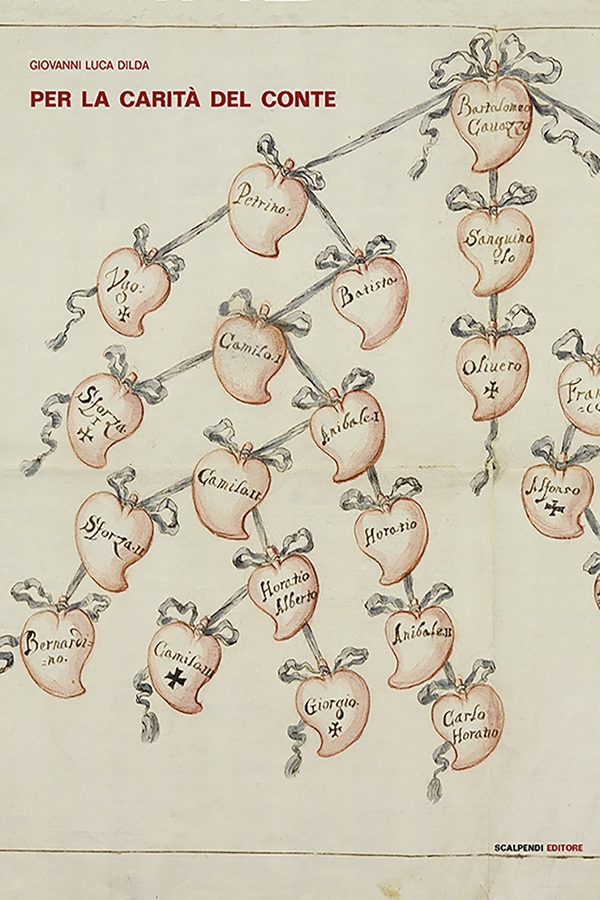 GIOVANNI LUCA DILDA
PER LA CARITÀ DEL CONTE
Bartolomeo
Gavazzo
Petrino:
Sanguino
=lo
Vgo:
Batista
Camilo.I
Olivero
Sforza
I
Anibale.I
Fran
=co
Camilo.II
Alfonso
Sforza.II
Horatio
Horatio
Alberto
Bernardi=
=no.
Camilo.III
Anibale.II
Giorgio.
Carlo
Horatio
SCALPENDI EDITORE